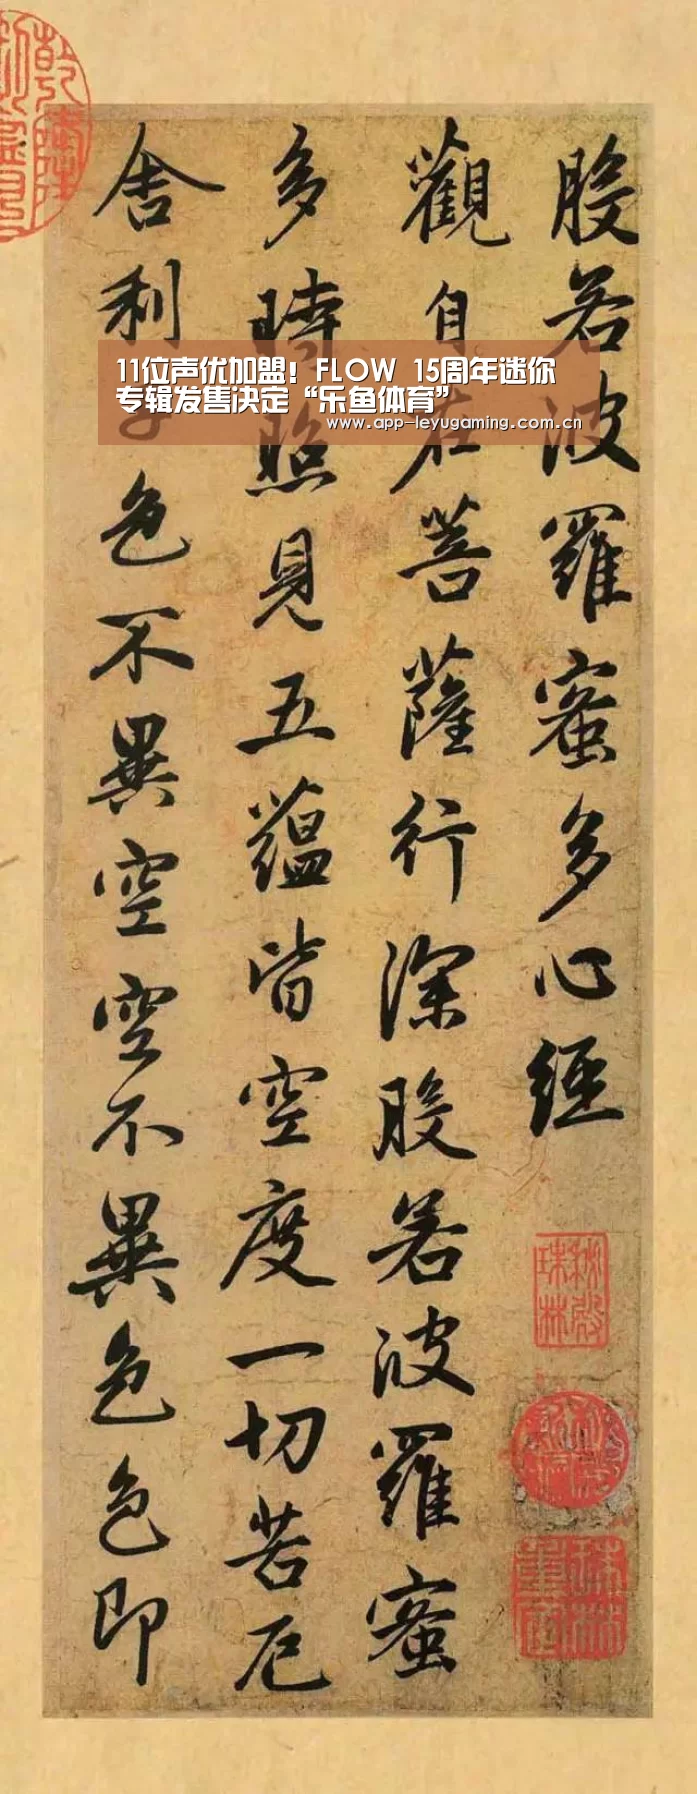 般若波羅蜜多心經
觀自在菩薩行深般若波羅蜜
多時照見五蘊皆空度一切苦厄
舍利子色不異空空不異色色即
11位声优加盟！FLOW 15周年迷你
专辑发售决定“乐鱼体育”
www.app-leyugaming.com.cn
秘殿珠林